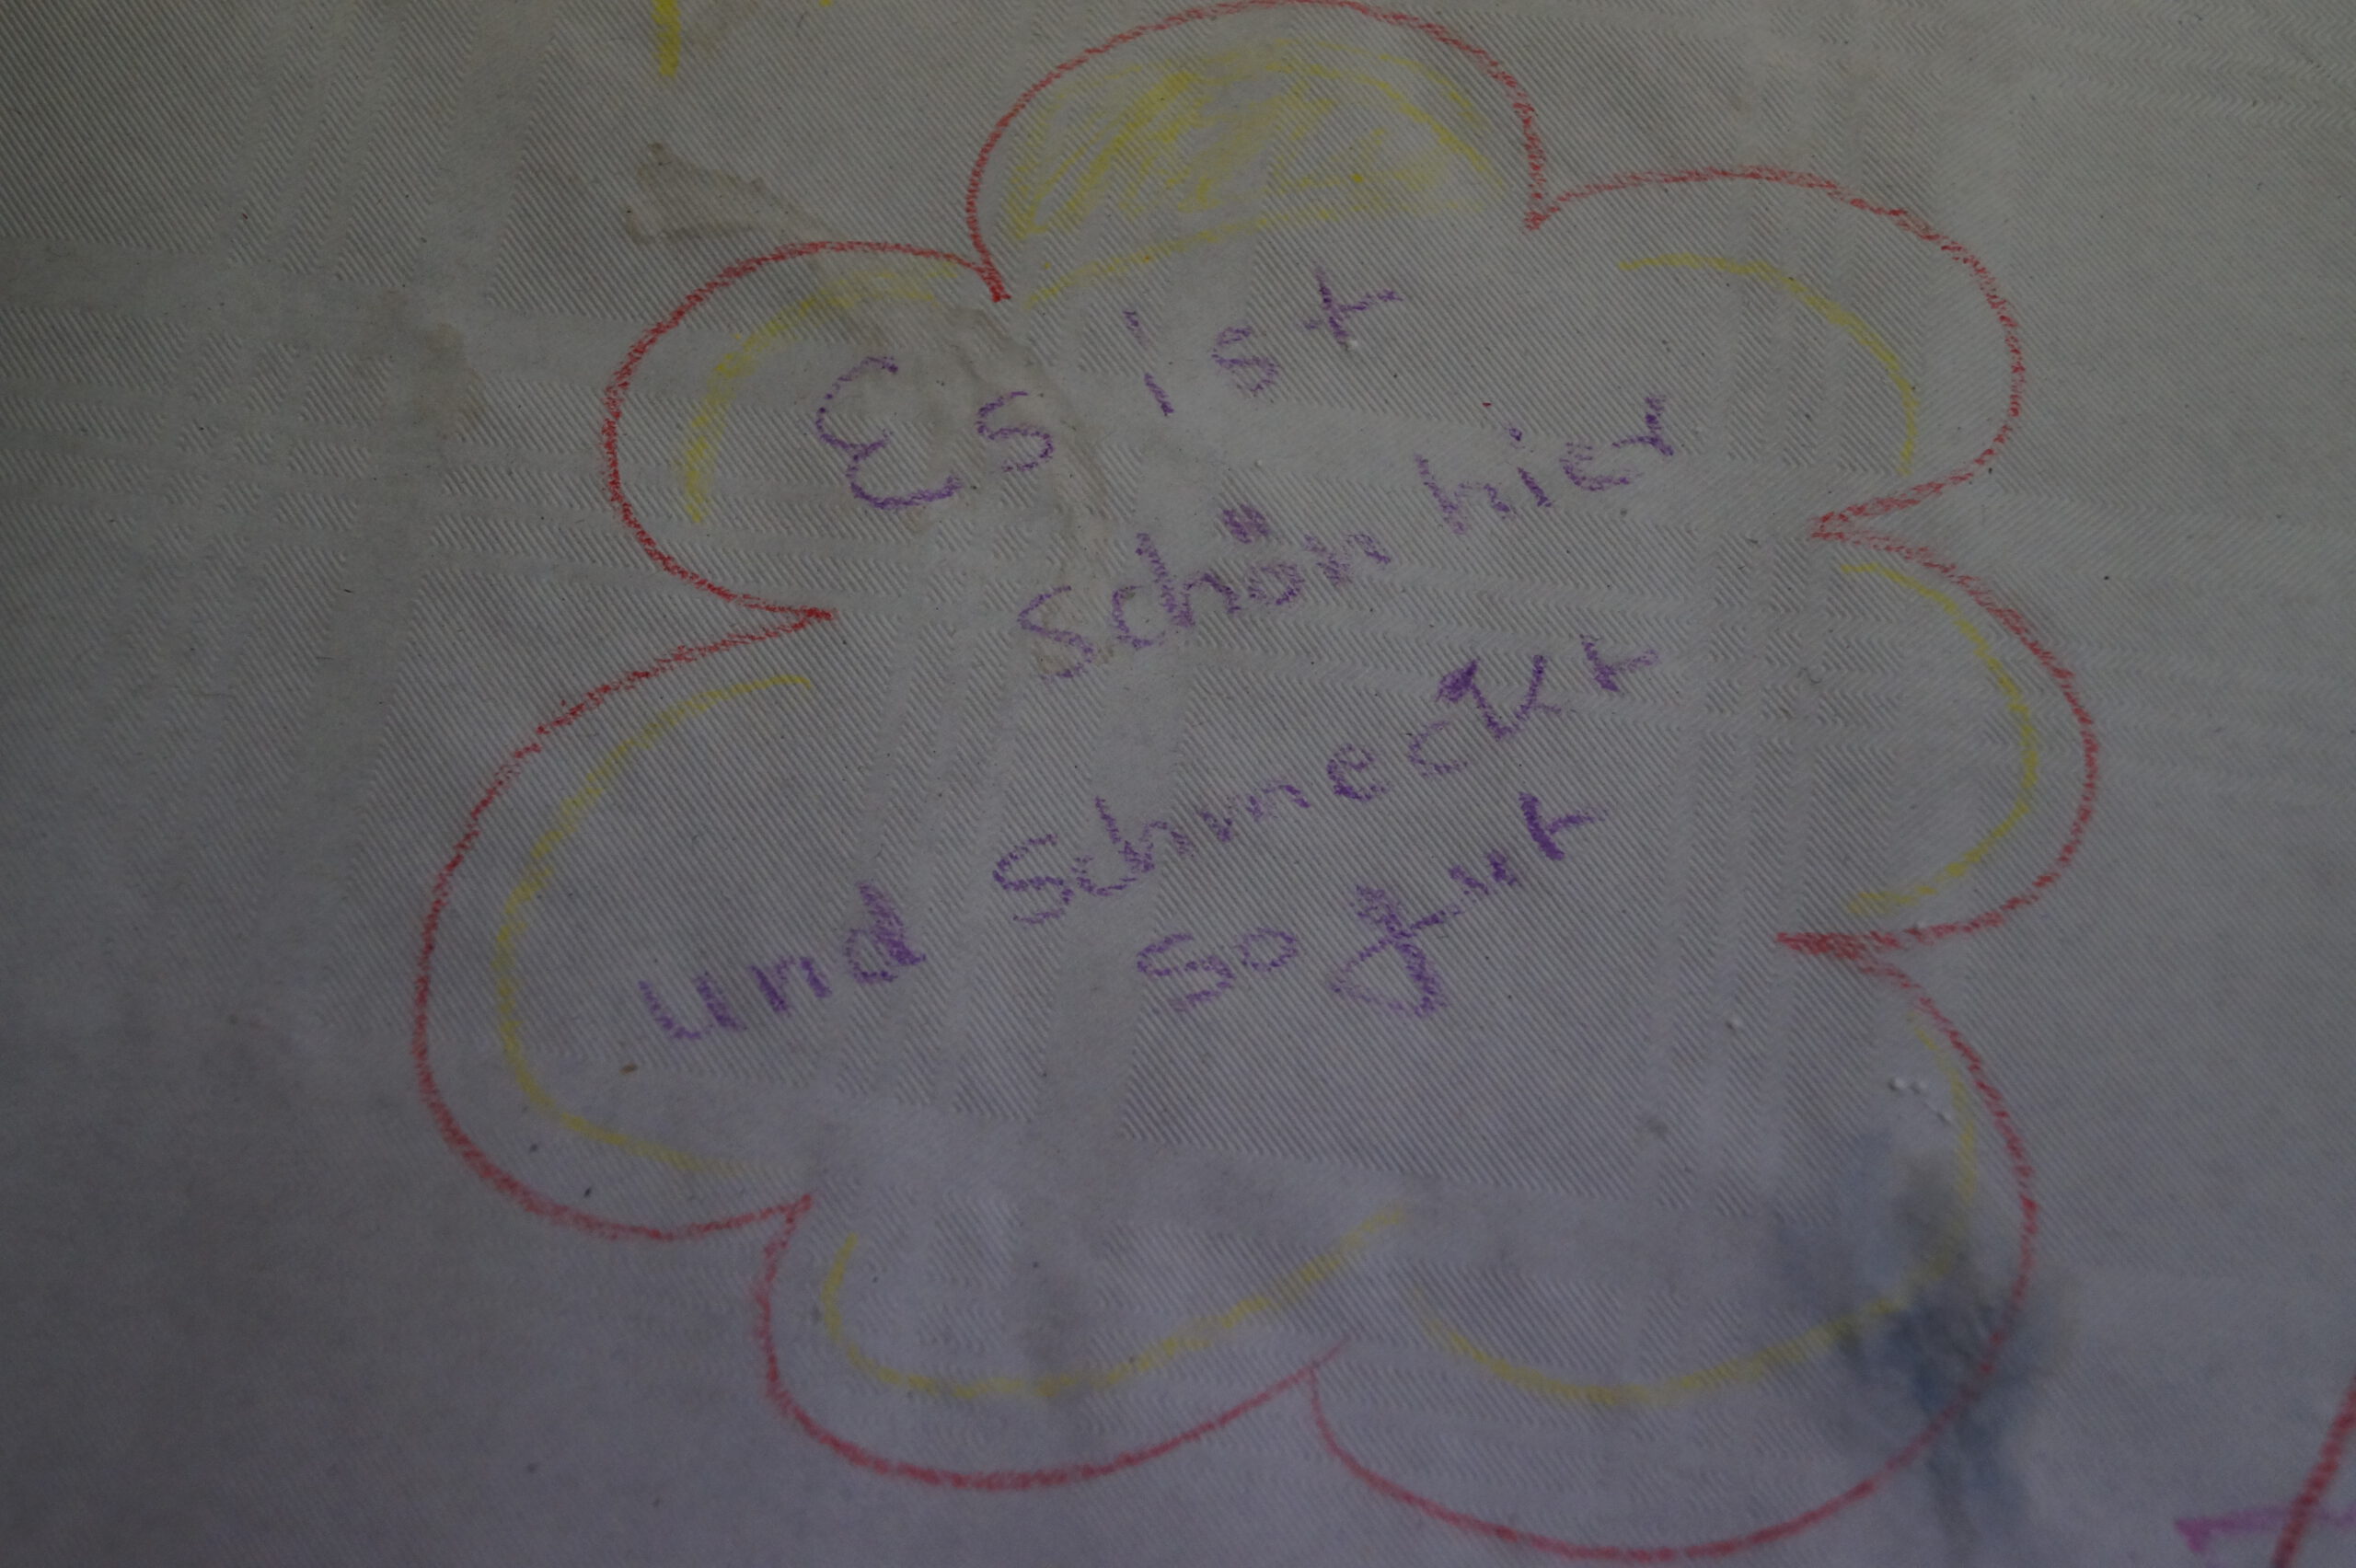 Es ist
schön hier
und schmeckt
so gut